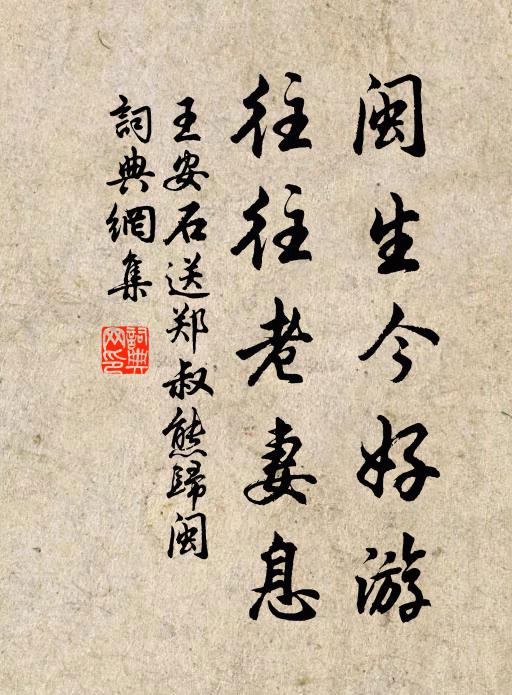 闽生今好游
往往老妻息
王安石送郑叔熊歸闽
詞典網集
詞典网印